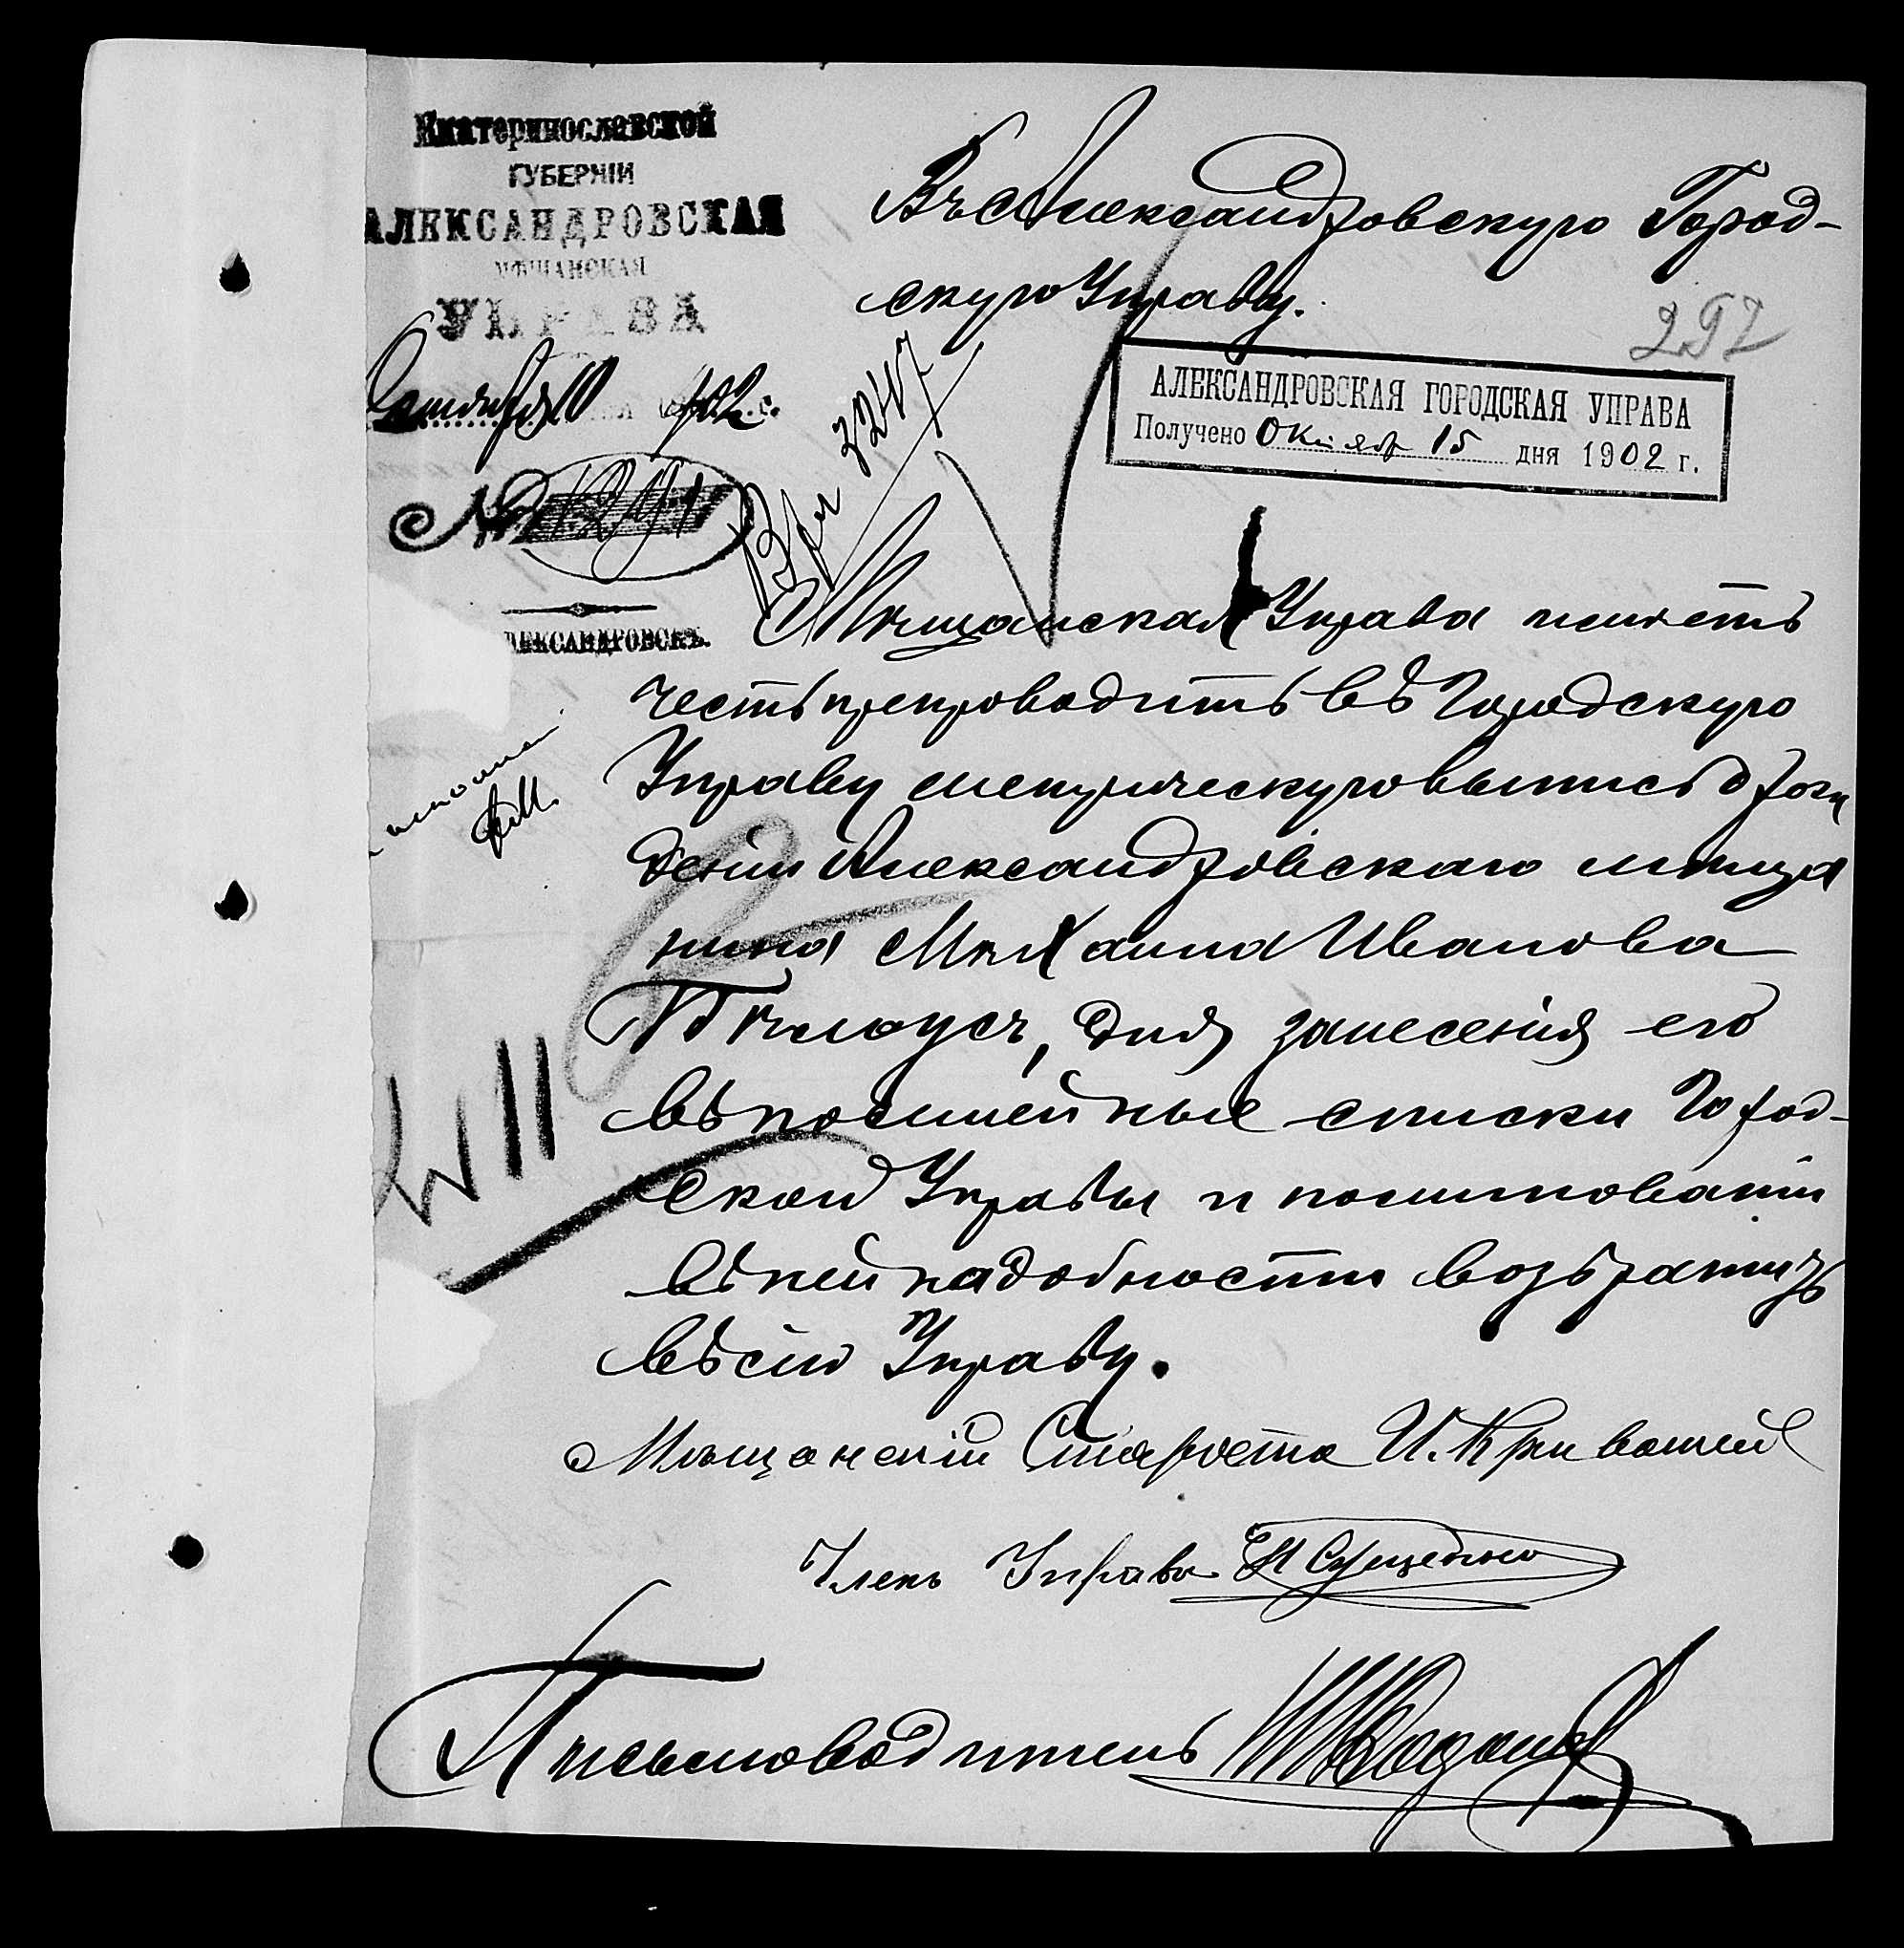 Екатеринославской
ГУБЕРНІИ
АЛЕКСАНДРОВСКАЯ
МѢЩАНСКАЯ
УПРАВА
1902 г.
№ 1291
АЛЕКСАНДРОВСКЪ.
Въ Александровскую Город-
скую Управу.
297
АЛЕКСАНДРОВСКАЯ ГОРОДСКАЯ УПРАВА
Получено Октябр 15 дня 1902 г.
Мѣщанская Управа имѣетъ
честь препроводить въ Городскую
Управу метрическую выпись о рож
деніи Александровскаго мѣща
нина Михаила Иванова
Бѣлоусъ, для занесенія его
въ посемейные списки Город-
ской Управы и по минованіи
въ ней надобности возвратить
въ сію Управу.
Мѣщанскій Староста И.
Членъ Управы
Письмоводитель